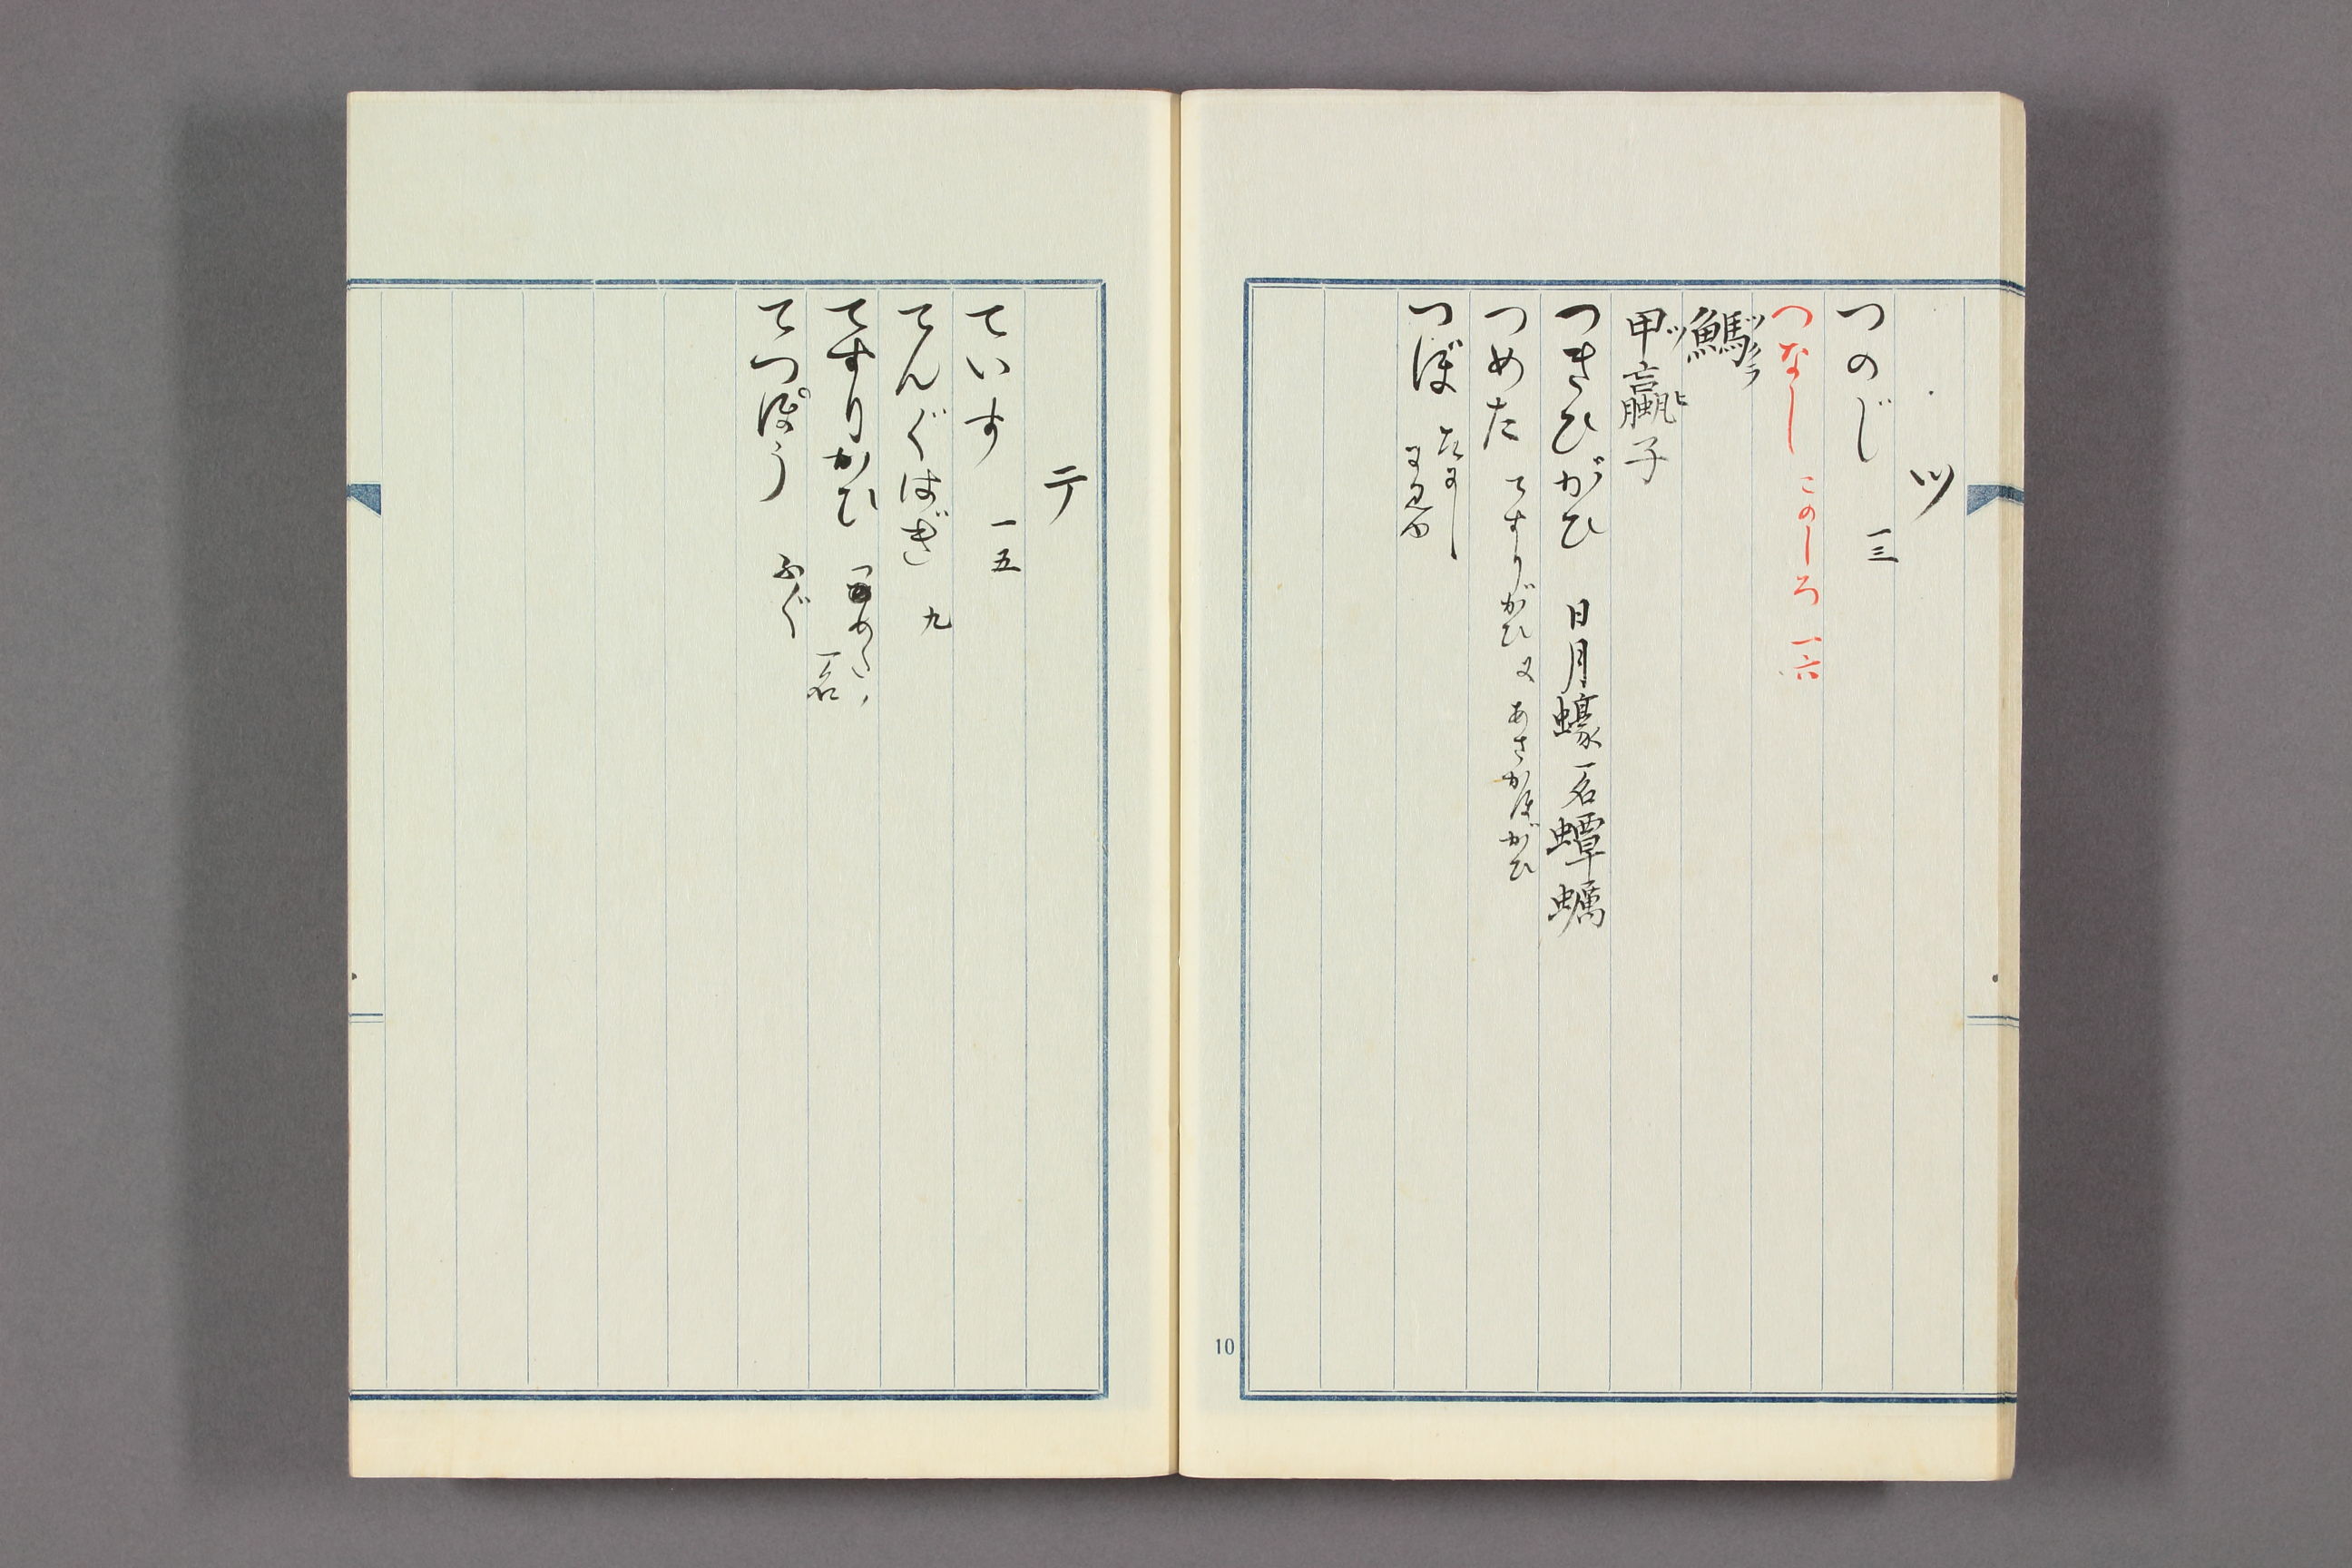 ツ
つのじ 一三
つなし このしろ 一六
䲖 ツバクラ
甲蠃子 ツヒ
つきひがひ 日月蠔 一名 蟫蠣
つめた てすりがひ 又 あさがほがひ
つぼ たにし
10
テ
ていす 一五
てんぐはぎ 九
てすりかひ つめた 一名
てつぽう ふぐ